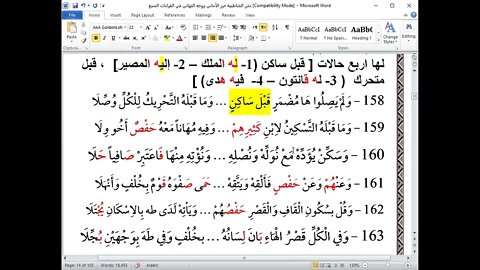 متن الشاطبية حرز الأماني ووجه التهاني في القراءات السبع [Compatibility Mode] - Microsoft Word
لها أربع حالات [ قبل ساكن (1- له الملك – 2- إليه المصير] ، قبل
متحرك ( 3- له قانتون – 4- فيه هدى) ]
158 – وَلَمْ يَصِلُوا هَا مُضْمَرٍ قَبْلَ سَاكِنٍ ... وَمَا قَبْلَهُ التَّحْرِيكُ لِلْكُلِّ وُصِّلَا
159 – وَمَا قَبْلَهُ التَّسْكِينُ لِابْنِ كَثِيرِهِمْ ... وَفِيهِ مُهَانًا مَعْهُ حَفْصٌ أَخُو وِلَا
160 – وَسَكِّنْ يُؤَدِّهْ مَعْ نُوَلِّهْ وَنُصْلِهِ ... وَنُؤْتِهِ مِنْهَا فَاعْتَبِرْ صَافِياً حَلَا
161 – وَعَنْهُمْ وَعَنْ حَفْصٍ فَأَلْقِهْ وَيَتَّقِهْ ... حَمَى صَفْوَهُ قَوْمٌ بِخُلْفٍ وَأَنْهَلَا
162 – وَقُلْ بِسُكُونِ الْقَافِ وَالْقَصْرِ حَفْصُهُمْ ... وَيَأْتِهْ لَدَى طه بِالِاسْكَانِ يُجْتَلَا
163 – وَفِي الْكُلِّ قَصْرُ الْهَاءِ بَانَ لِسَانُهُ ... بِخُلْفٍ وَفِي طه بِوَجْهَيْنِ بُجِّلَا
Page: 14 of 103 Words: 16,455 Arabic 130%